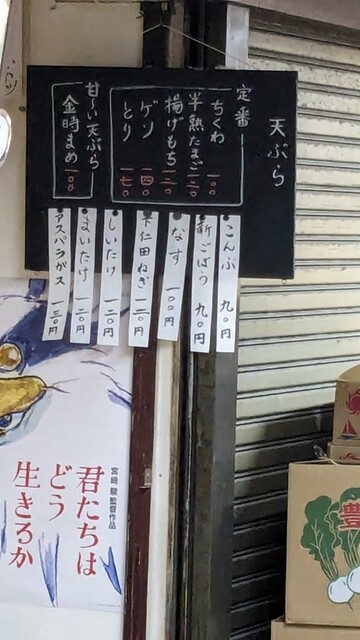 天ぷら
定番
ちくわ 一〇〇
半熟たまご 一二〇
揚げもち 一二〇
ゲソ 一四〇
とり 一七〇
甘〜い天ぷら
金時まめ 一〇〇
こんぶ 九〇円
新ごぼう 九〇円
なす 一〇〇円
下仁田ねぎ 一二〇円
しいたけ 一二〇円
まいたけ 一二〇円
アスパラガス 一三〇円
宮﨑駿監督作品
君たちは
どう
生きるか
豊